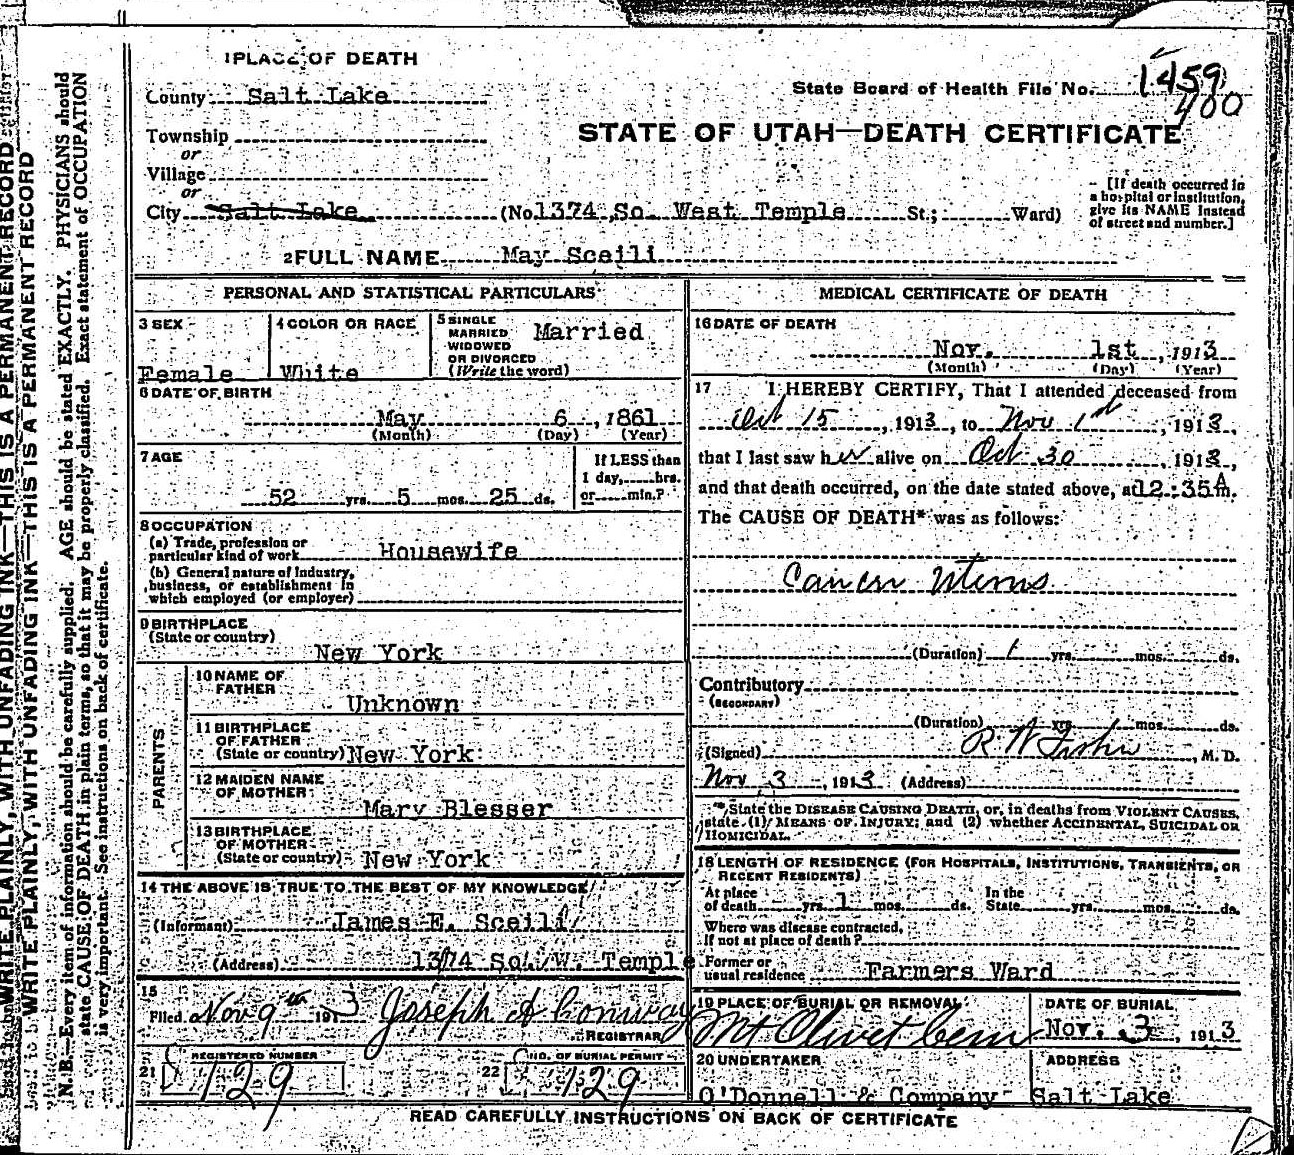 1 PLACE OF DEATH
County Salt Lake
State Board of Health File No. 1459
400
STATE OF UTAH—DEATH CERTIFICATE
Township
or
Village
or
City Salt Lake (No. 1374 So. West Temple St.; Ward)
[If death occurred in a hospital or institution, give its NAME instead of street and number.]
2 FULL NAME May Sceili
PERSONAL AND STATISTICAL PARTICULARS
3 SEX
Female
4 COLOR OR RACE
White
5 SINGLE MARRIED WIDOWED OR DIVORCED (Write the word)
Married
6 DATE OF BIRTH
May 6, 1861
(Month) (Day) (Year)
7 AGE
52 yrs. 5 mos. 25 ds.
If LESS than 1 day, hrs. or min.?
8 OCCUPATION
(a) Trade, profession or particular kind of work Housewife
(b) General nature of industry, business, or establishment in which employed (or employer)
9 BIRTHPLACE
(State or country)
New York
PARENTS
10 NAME OF FATHER
Unknown
11 BIRTHPLACE OF FATHER
(State or country) New York
12 MAIDEN NAME OF MOTHER
Mary Blesser
13 BIRTHPLACE OF MOTHER
(State or country) New York
14 THE ABOVE IS TRUE TO THE BEST OF MY KNOWLEDGE
(Informant) James E. Sceili
(Address) 1374 So. W. Temple
15
Filed Nov 9th 1913 Joseph A Conway
REGISTRAR
21 REGISTERED NUMBER
129
22 NO. OF BURIAL PERMIT
129
MEDICAL CERTIFICATE OF DEATH
16 DATE OF DEATH
Nov. 1st, 1913
(Month) (Day) (Year)
17 I HEREBY CERTIFY, That I attended deceased from
Oct 15, 1913, to Nov 1st, 1913,
that I last saw her alive on Oct 30, 1913,
and that death occurred, on the date stated above, at 12:35 A m.
The CAUSE OF DEATH* was as follows:
Cancer Uterus
(Duration) 1 yrs. mos. ds.
Contributory
(SECONDARY)
(Duration) yrs. mos. ds.
(Signed) R W Fisher, M. D.
Nov 3, 1913 (Address)
*State the DISEASE CAUSING DEATH, or, in deaths from VIOLENT CAUSES, state (1) MEANS OF INJURY; and (2) whether ACCIDENTAL, SUICIDAL OR HOMICIDAL.
18 LENGTH OF RESIDENCE (FOR HOSPITALS, INSTITUTIONS, TRANSIENTS, OR RECENT RESIDENTS)
At place of death yrs. 1 mos. ds. In the State yrs. mos. ds.
Where was disease contracted, If not at place of death?
Former or usual residence Farmers Ward
19 PLACE OF BURIAL OR REMOVAL
Mt Olivet Cem
DATE OF BURIAL
Nov. 3, 1913
20 UNDERTAKER
O'Donnell & Company
ADDRESS
Salt Lake
READ CAREFULLY INSTRUCTIONS ON BACK OF CERTIFICATE
WRITE PLAINLY, WITH UNFADING INK—THIS IS A PERMANENT RECORD
WRITE PLAINLY, WITH UNFADING INK—THIS IS A PERMANENT RECORD
N. B.—Every item of information should be carefully supplied. AGE should be stated EXACTLY. PHYSICIANS should
state CAUSE OF DEATH in plain terms, so that it may be properly classified. Exact statement of OCCUPATION
is very important. See instructions on back of certificate.